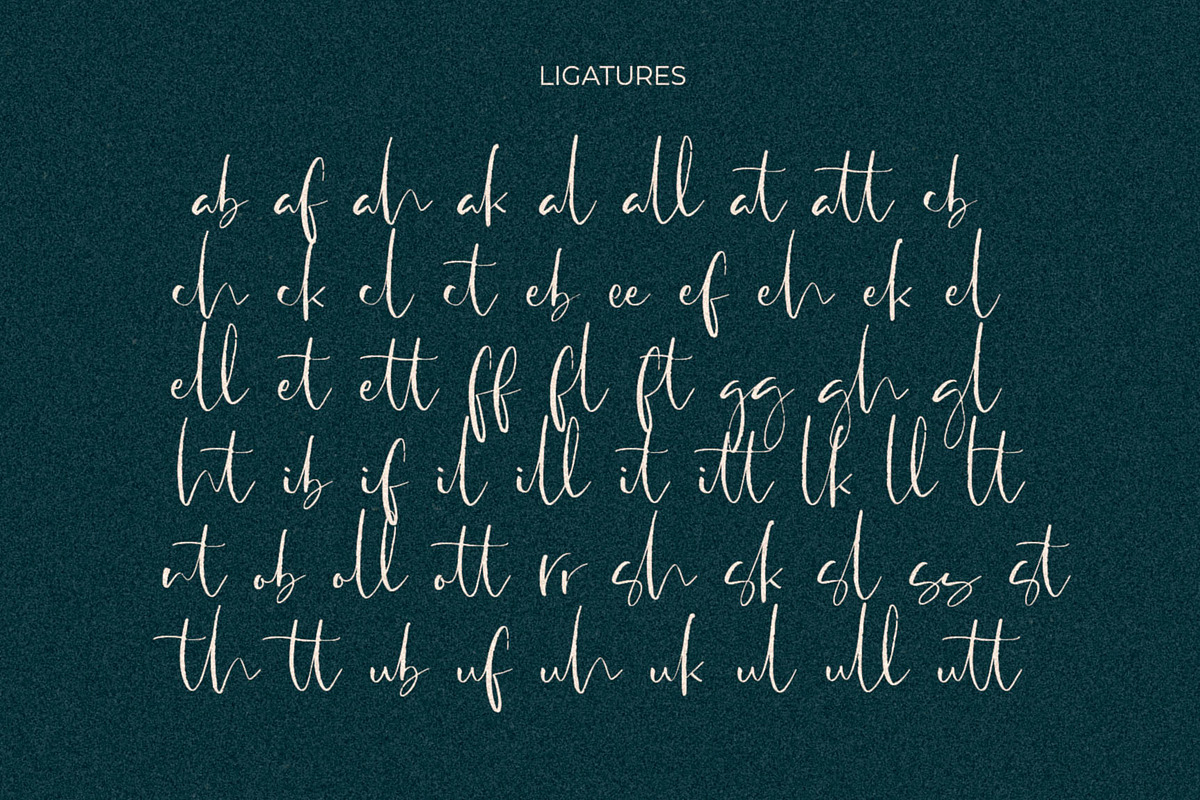 LIGATURES
ab af ah ak al all at att cb
ch ck cl ct eb ee ef eh ek el
ell et ett ff fl ft gg gh gl
ht ib if il ill it itt lk ll lt
nt ob oll ott rr sh sk sl ss st
th tt ub uf uh uk ul ull utt